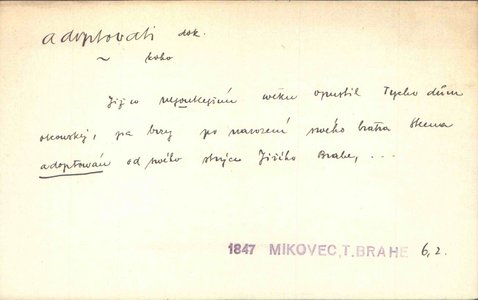 adoptovati dok.
~ koho
Již w nejoutlejším wěku opustil Tycho dům
otcowský, pa brzy po narození swého bratra Stena
adoptowán od swého strýce Jiřího Brahe, ...
1847 MIKOVEC,T.BRAHE 6,2.